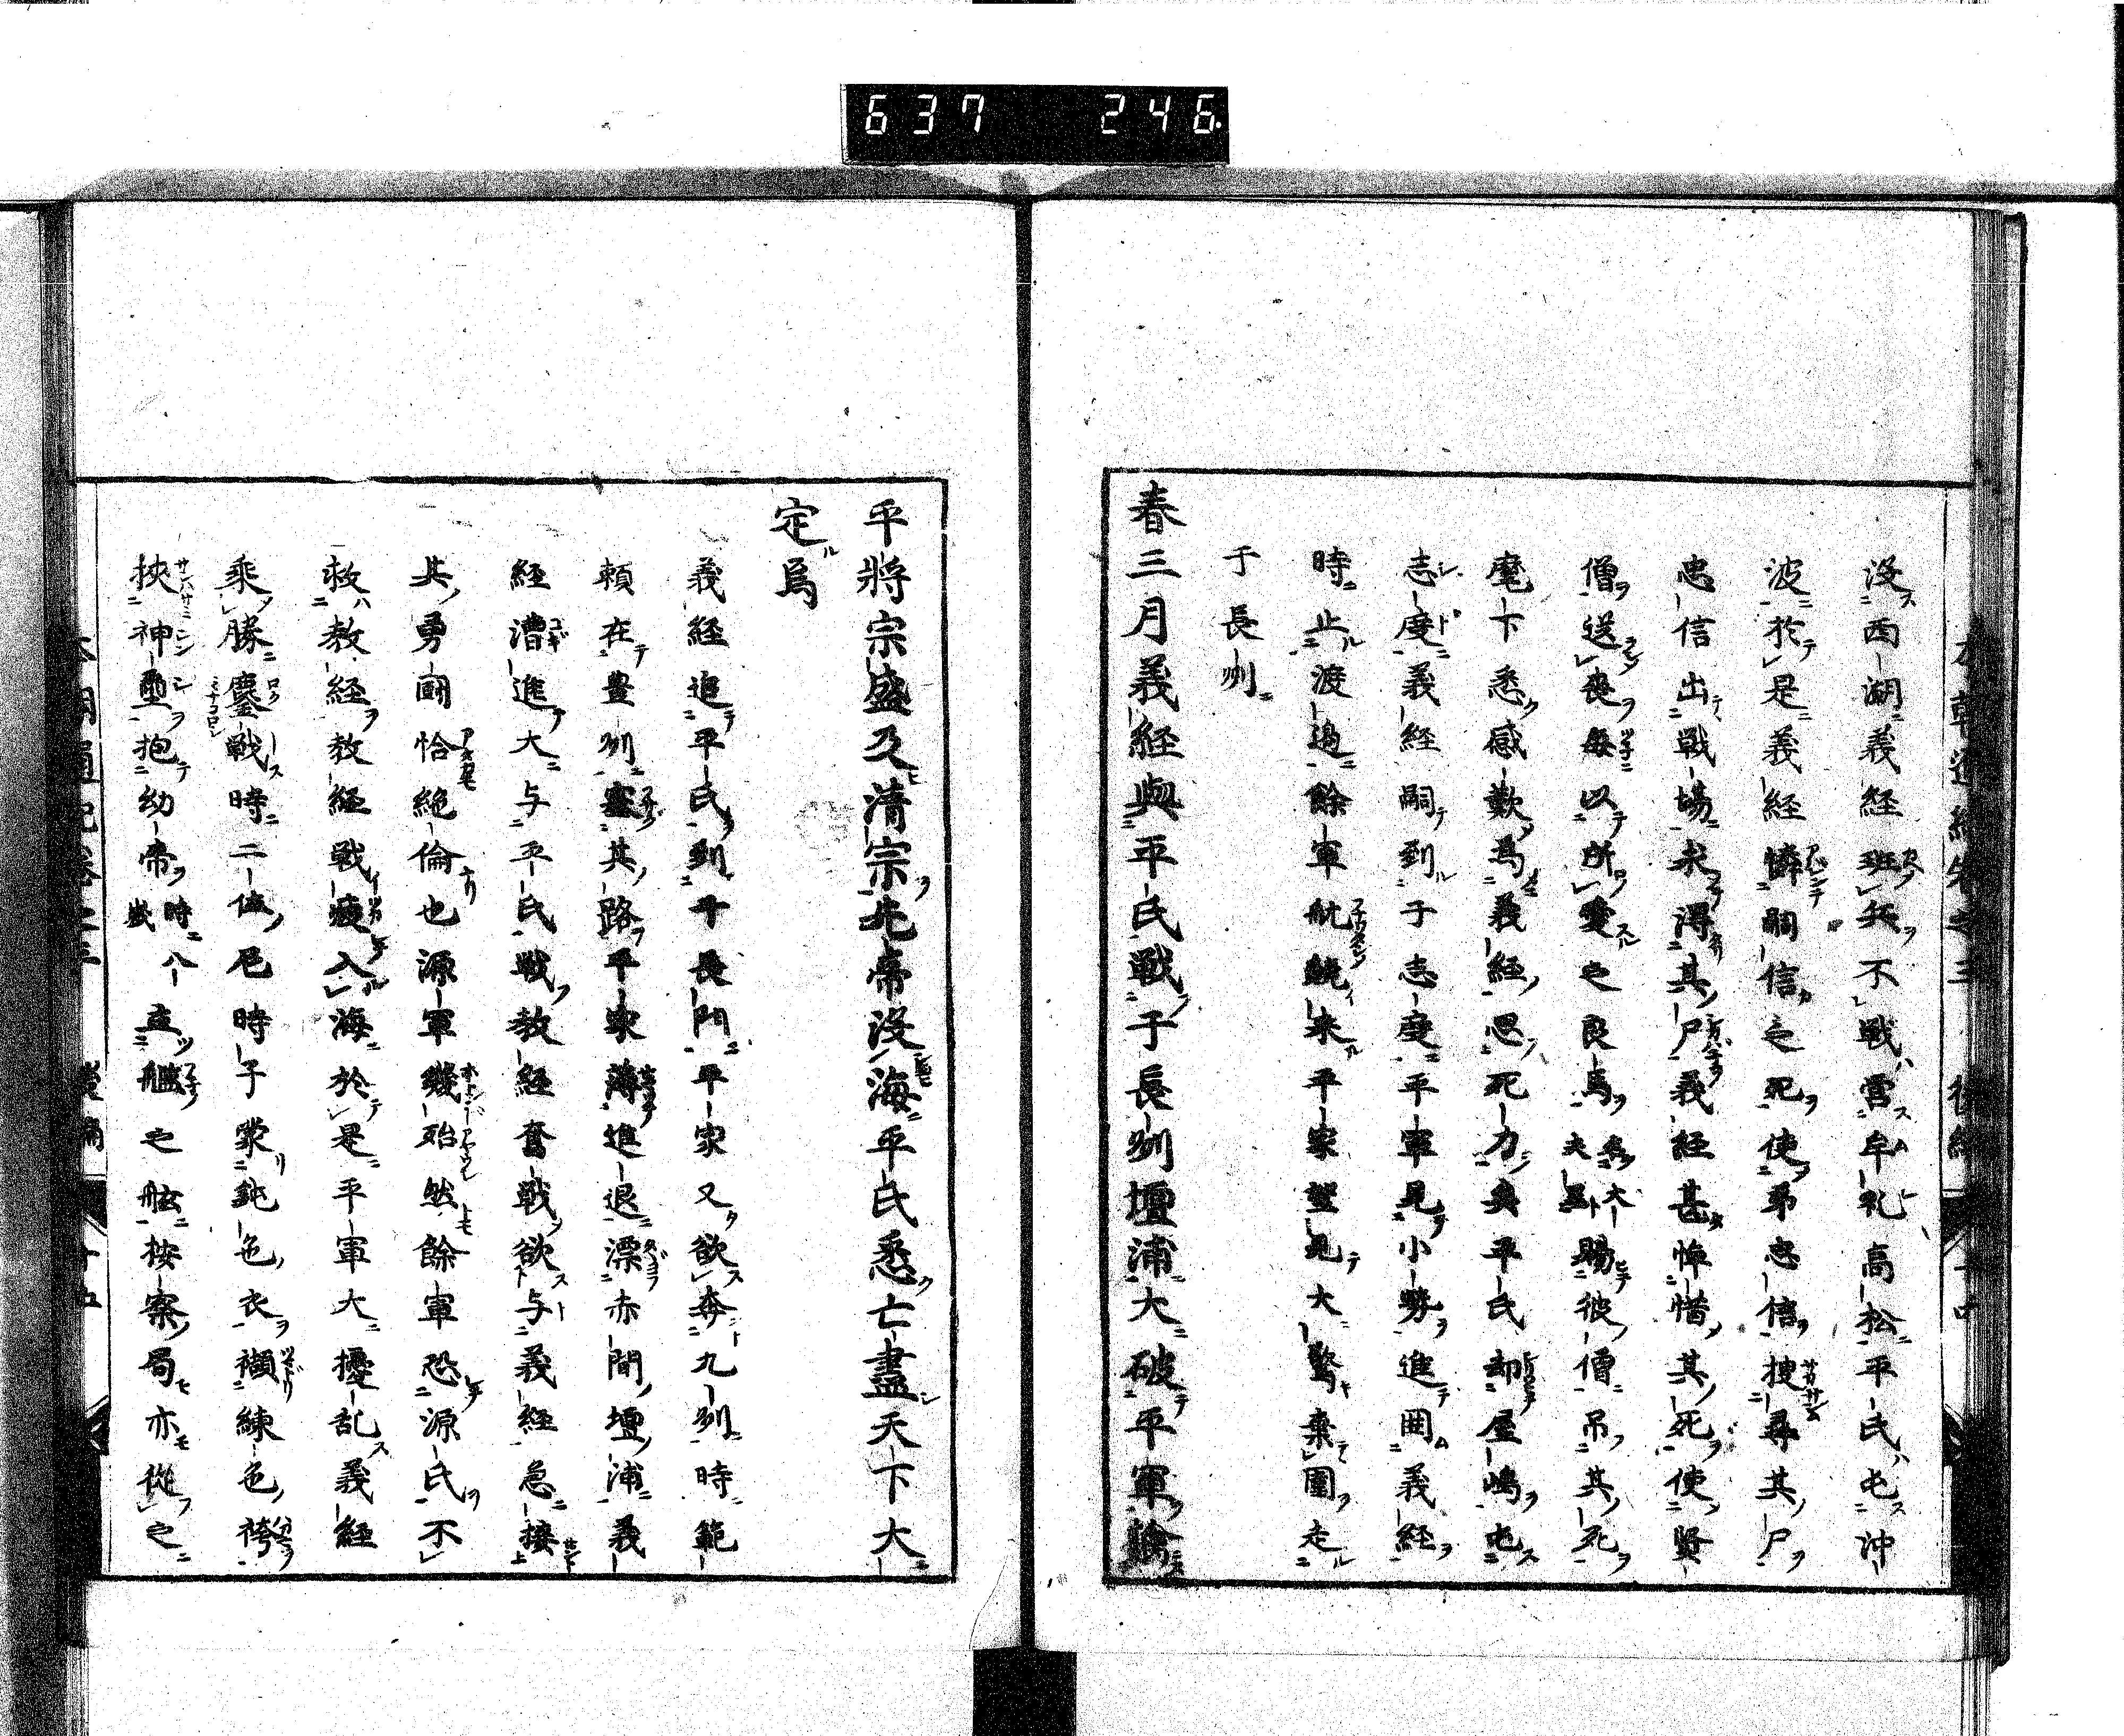 637 246
没西湖義経班兵不戦宮牟礼高松平氏屯沖
波於是義経憐嗣信之死使弟忠信捜尋其尸
忠信出戦場求得其尸義経甚悼惜其死使賢
僧送喪毎以所愛之良馬名大夫黒賜彼僧吊其死
麾下悉感歎為義経思死力矣平氏却屋嶋屯
志度義経嗣到于志度平軍見小勢進囲義経
時止渡邉餘軍舩競来平家望見大驚棄圍走
于長州
春三月義経與平氏戦于長州壇浦大破平軍擒
平將宗盛及清宗先帝没海平氏悉亡盡天下大
定焉
義経追平氏到于長門平家又欲奔九州時範
頼在豊州塞其路平家薄進退漂赤間壇浦義
経漕進大与平氏戦教経奮戦欲与義経急接
其勇圖恰絶倫也源軍幾殆然餘軍恐源氏不
救教経教経戦疲入海於是平軍大擾乱義経
乘勝鏖戦時二位尼時子蒙鈍色衣襭練色袴
挾神璽抱幼帝時八歳立艫之舷按察局亦從之